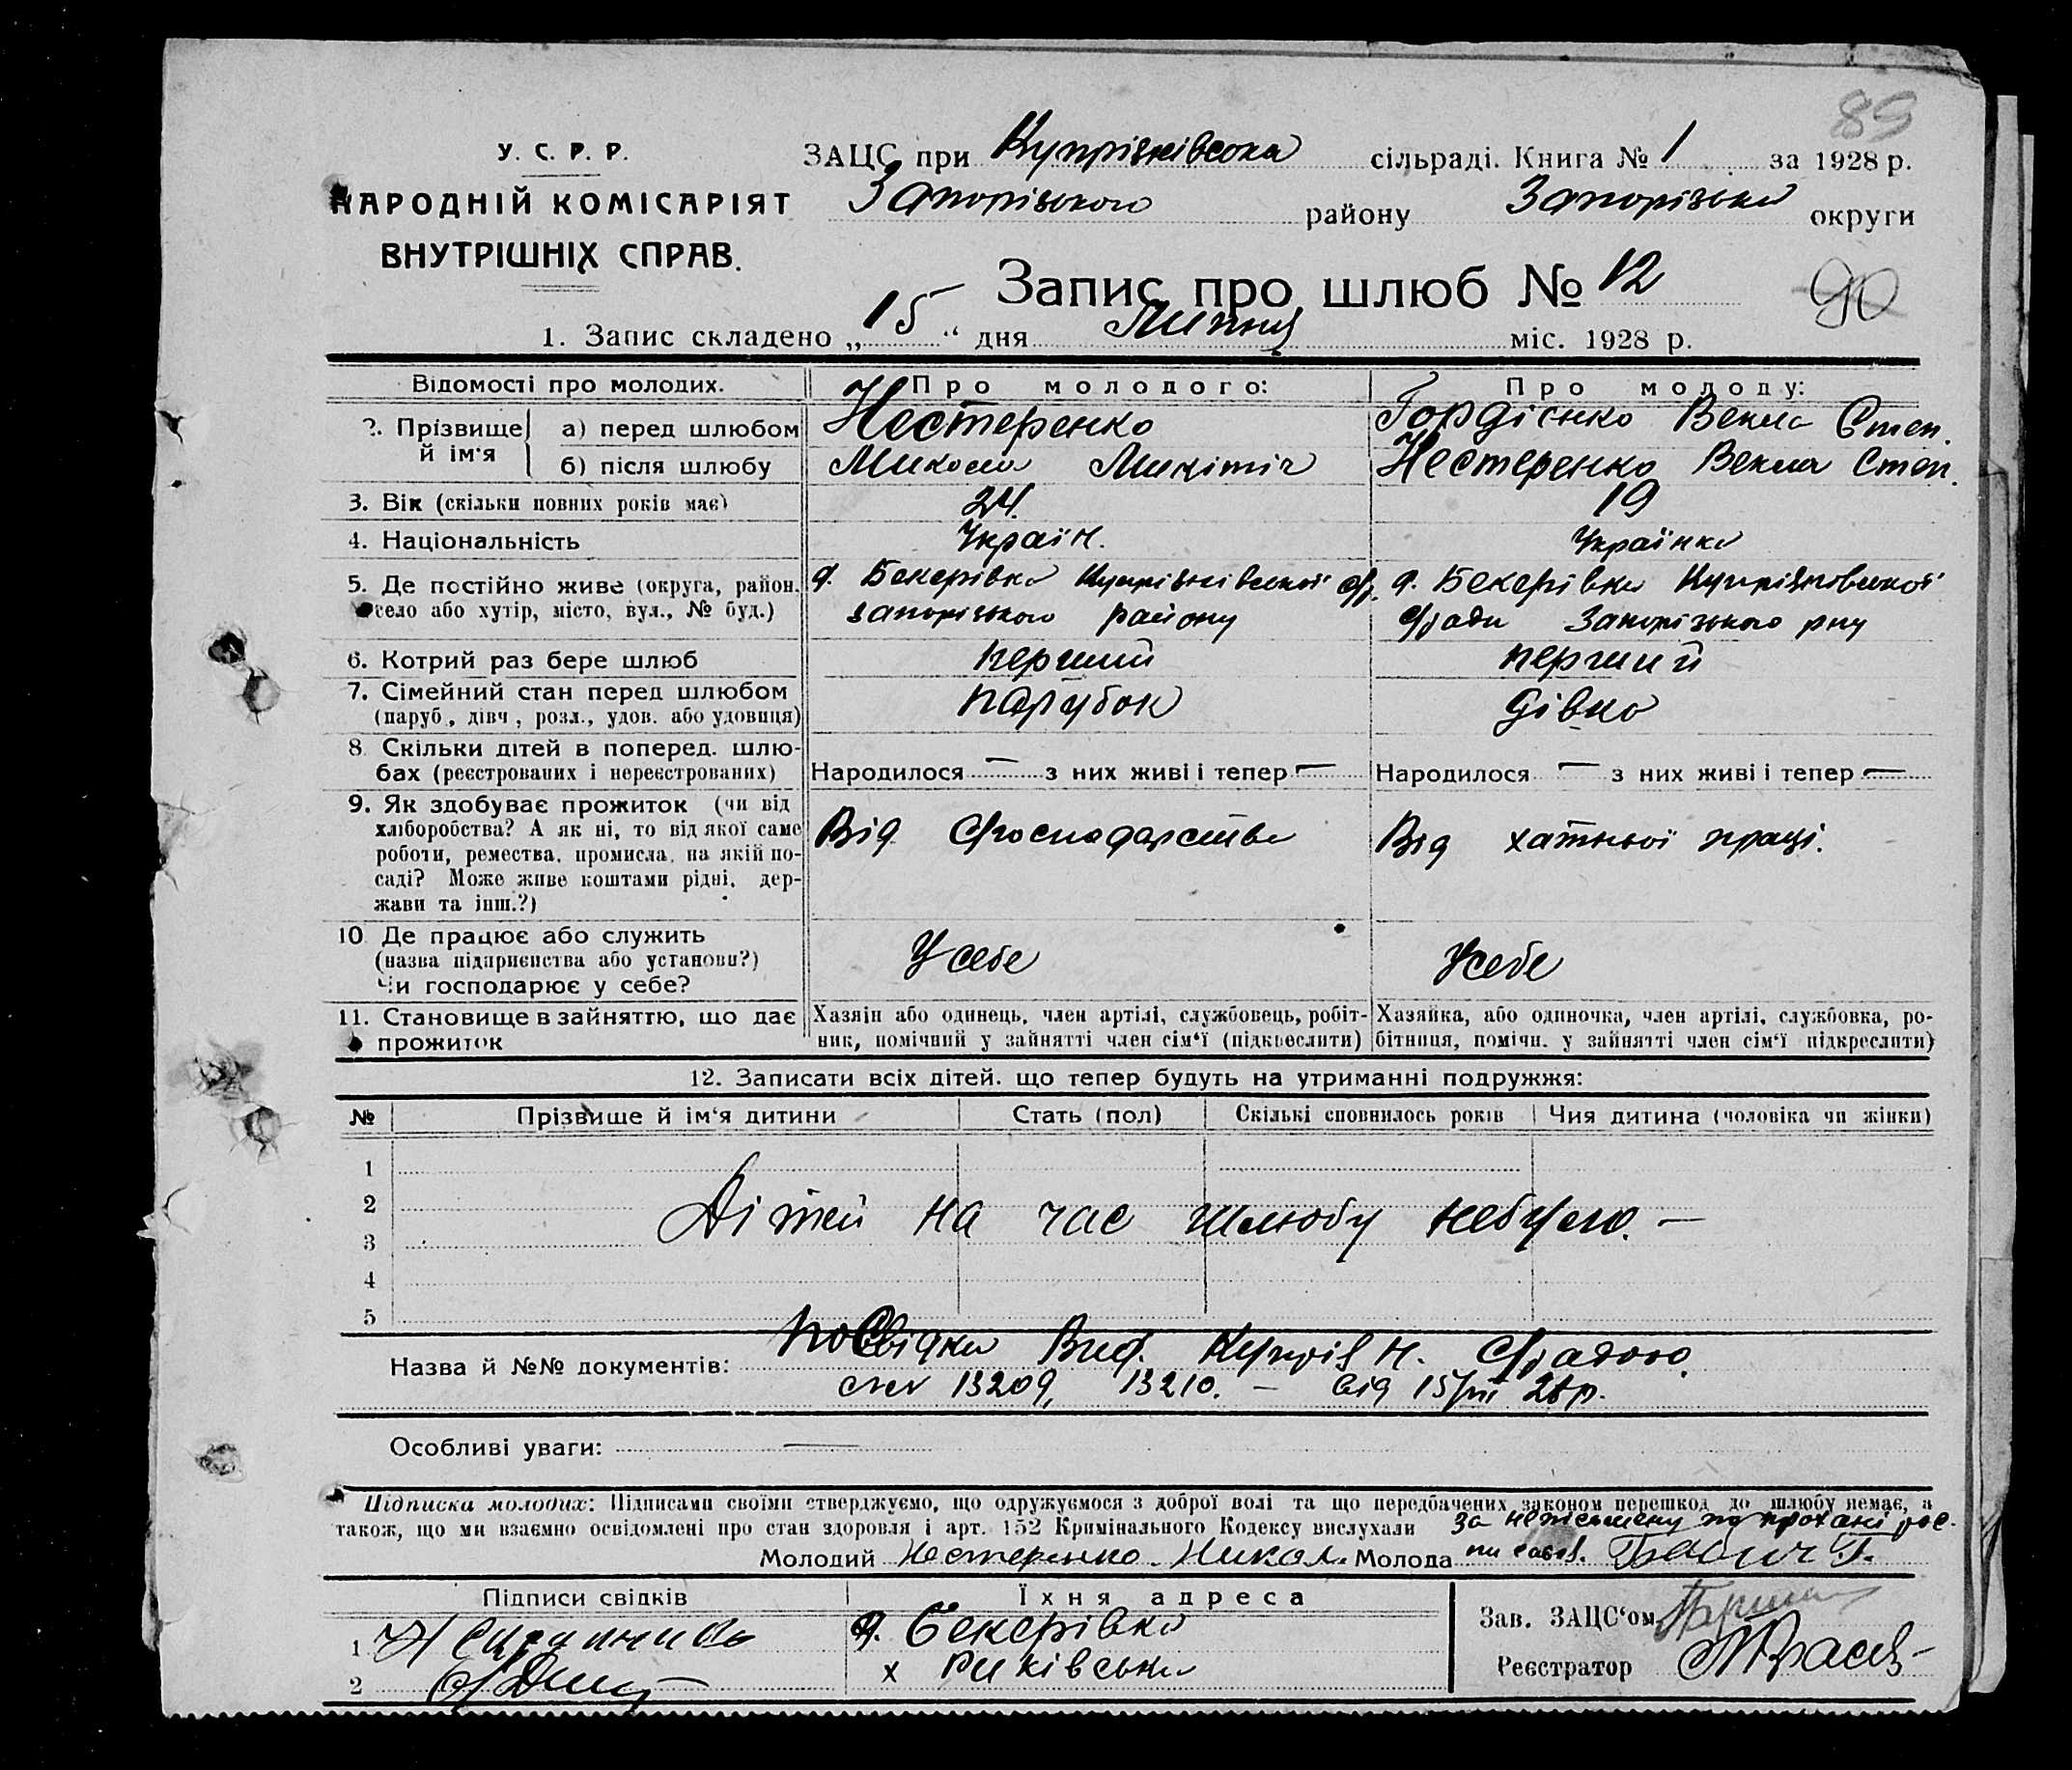 89
У. С. Р. Р.
НАРОДНІЙ КОМІСАРІЯТ
ВНУТРІШНІХ СПРАВ.
ЗАЦС при Купріянівська сільраді. Книга № 1 за 1928 р.
Запорізького району Запорізька округи
Запис про шлюб № 12
90
1. Запис складено „ 15 “ дня Липня міс. 1928 р.
Відомості про молодих. Про молодого: Про молоду:
2. Прізвище й ім'я а) перед шлюбом Нестеренко Гордієнко Векла Степ.
б) після шлюбу Микола Микітіч Нестеренко Векла Степ.
3. Вік (скільки повних років має) 24. 19
4. Національність Україн. Українка
5. Де постійно живе (округа, район, д. Бекерівка Купріянівської с/р. д. Бекерівка Купріяновської
село або хутір, місто, вул., № буд.) запорізького району с/ради Запорізького рну
6. Котрий раз бере шлюб перший перший
7. Сімейний стан перед шлюбом парубок дівка
(паруб., дівч., розл., удов. або удовиця)
8. Скільки дітей в поперед. шлю-
бах (реєстрованих і нереєстрованих) Народилося — з них живі і тепер — Народилося — з них живі і тепер —
9. Як здобуває прожиток (чи від
хліборобства? А як ні, то від якої саме Від с/господарства Від хатньої праці.
роботи, ремества, промисла, на якій по-
саді? Може живе коштами рідні, дер-
жави та інш.?)
10. Де працює або служить
(назва підприєнства або установи?) У себе У себе
Чи господарює у себе?
11. Становище в зайняттю, що дає Хазяїн або одинець, член артілі, службовець, робіт- Хазяйка, або одиночка, член артілі, службовка, ро-
прожиток ник, помічний у зайнятті член сім'ї (підкреслити) бітниця, помічн. у зайнятті член сім'ї підкреслити)
12. Записати всіх дітей, що тепер будуть на утриманні подружжя:
№ Прізвище й ім'я дитини Стать (пол) Скількі сповнилось років Чия дитина (чоловіка чи жінки)
1
2 Дітей на час шлюбу небуло. —
3
4
5
Назва й №№ документів: посвідки Вид. Купріян. с/радою.
13209, 13210. — від 15/VII 28 р.
Особливі уваги: —
Підписка молодих: Підписами своїми стверджуємо, що одружуємося з доброї волі та що передбачених законом перешкод до шлюбу немає, а
також, що ми взаємно освідомлені про стан здоровля і арт. 152 Кримінального Кодексу вислухали за неписьмену по прохані рос-
Молодий Нестеренко Никол. Молода
Підписи свідків Їхня адреса
1 д. Бекерівка
2 х
Зав. ЗАЦС'ом
Реєстратор